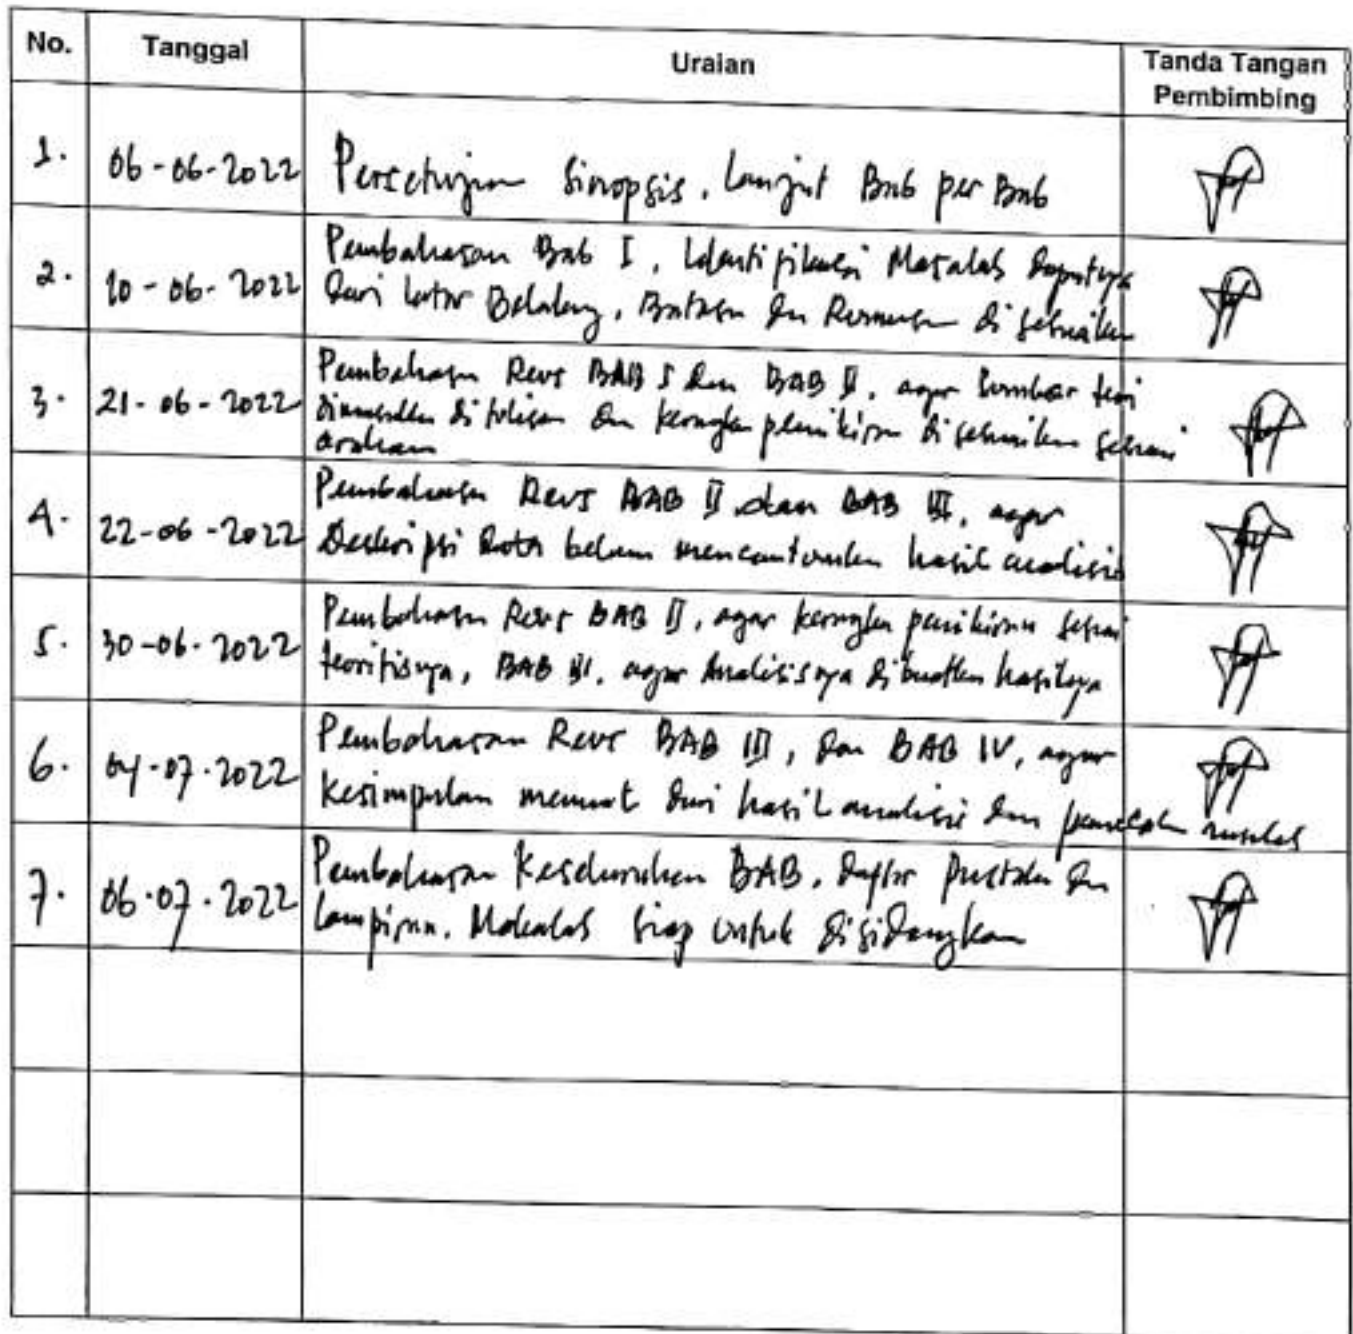 No. Tanggal Uraian Tanda Tangan
Pembimbing
1. 06-06-2022 Persetujuan Sinopsis, Lanjut Bab per Bab
2. 10-06-2022 Pembahasan Bab I, Identifikasi Masalah
dari latar Belakang, Batasan dan Rumusan disesuaikan
3. 21-06-2022 Pembahasan Revs BAB I dan BAB II, agar Sumber teori
ditulisan dan kerangka pemikiran disesuaikan sesuai
arahan
4. 22-06-2022 Pembahasan Revs BAB II dan BAB III, agar
Deskripsi Data belum mencantumkan hasil analisis
5. 30-06-2022 Pembahasan Revs BAB II, agar kerangka pemikiran sesuai
teoritisnya, BAB III, agar Analisisnya dibuatkan hasilnya
6. 04-07-2022 Pembahasan Revs BAB III, dan BAB IV, agar
Kesimpulan memuat dari hasil analisis dan
7. 06-07-2022 Pembahasan Keseluruhan BAB, Daftar Pustaka dan
Lampiran. Makalah Siap untuk disidangkan